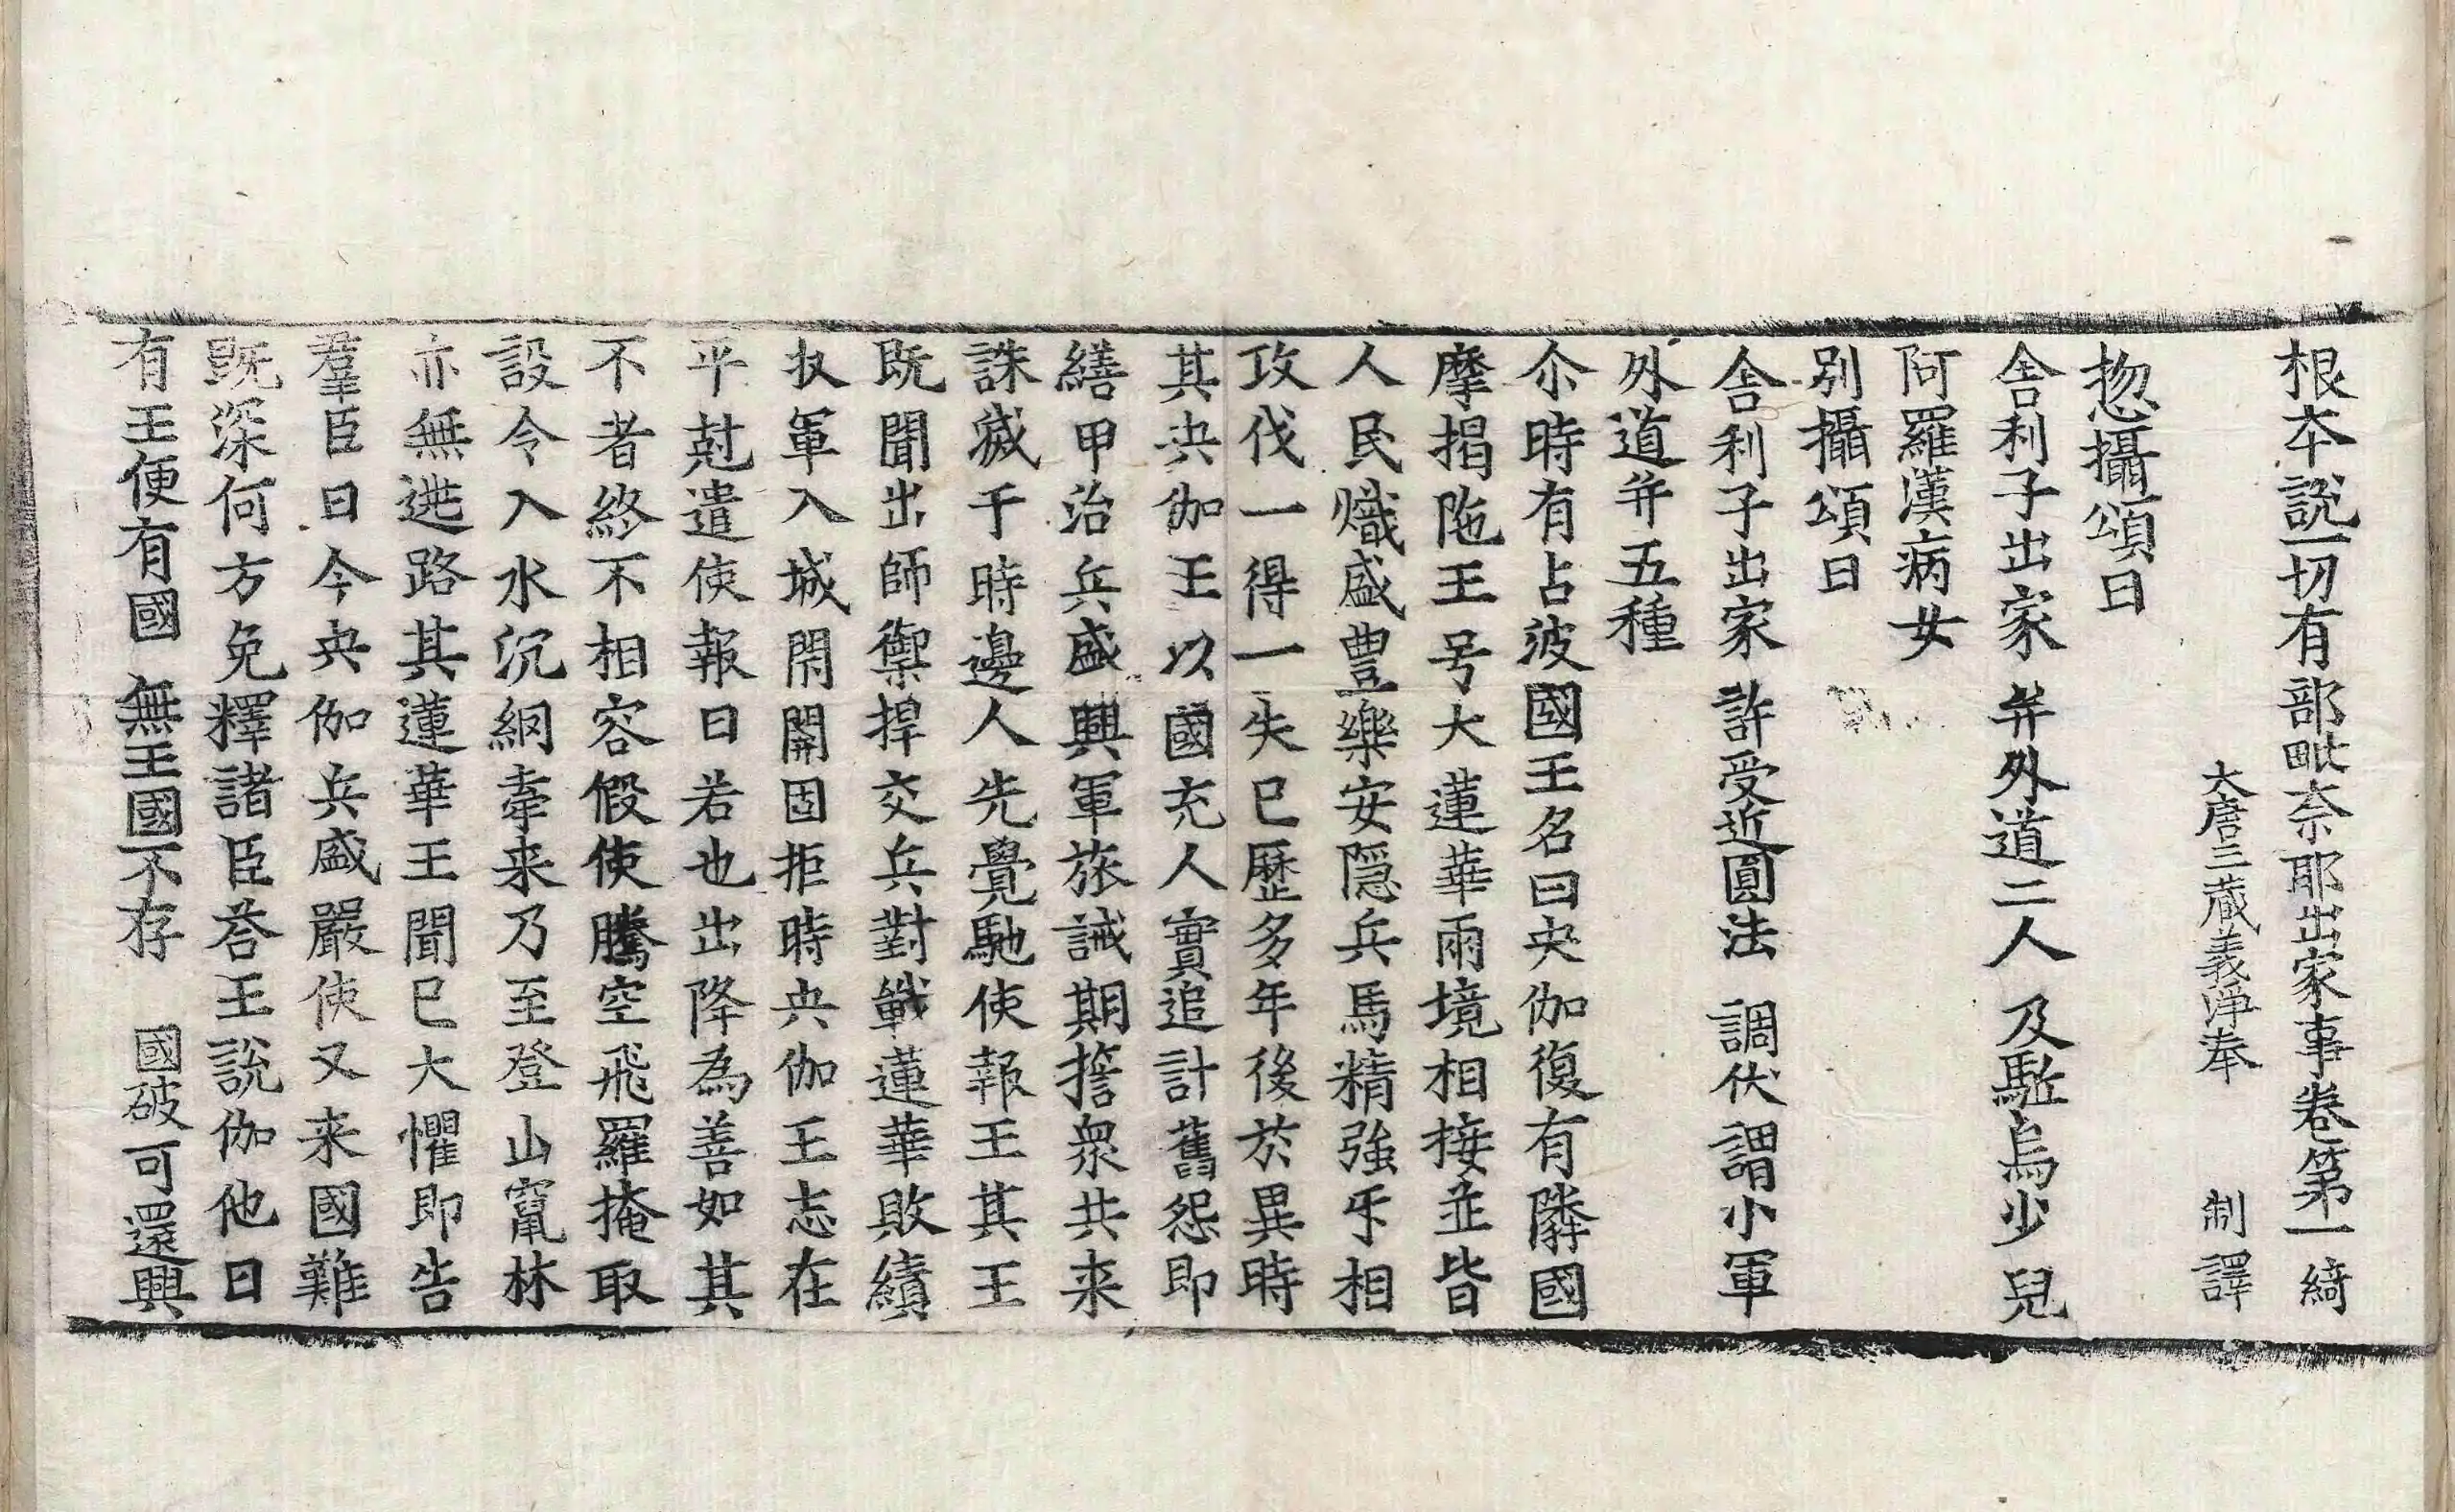 根本說一切有部毗奈耶出家事卷第一 綺
大唐三藏義淨奉 制譯
揔攝頌曰
舎利子出家 并外道二人 及駈烏少兒
阿羅漢病女
別攝頌曰
舎利子出家 許受近圓法 調伏謂小軍
外道并五種
尒時有占波國王名曰央伽復有隣國
摩揭陁王号大蓮華兩境相接並皆
人民熾盛豊樂安隱兵馬精強㸦相
攻伐一得一失已歷多年後於異時
其央伽王以國充人實追計舊怨即
繕甲治兵盛興軍旅誡期擔衆共来
誅滅于時邊人先覺馳使報王其王
既聞出師禦捍交兵對戰蓮華敗績
扙軍入城閇關固拒時央伽王志在
平尅遣使報曰若也出降為善如其
不者終不相容假使騰空飛羅掩取
設令入水沉網牽来乃至登山竄林
亦無逃路其蓮華王聞已大懼即告
羣臣曰今央伽兵盛嚴使又来國難
既深何方免釋諸臣荅王說伽他曰
有王便有國 無王國不存 國破可還興